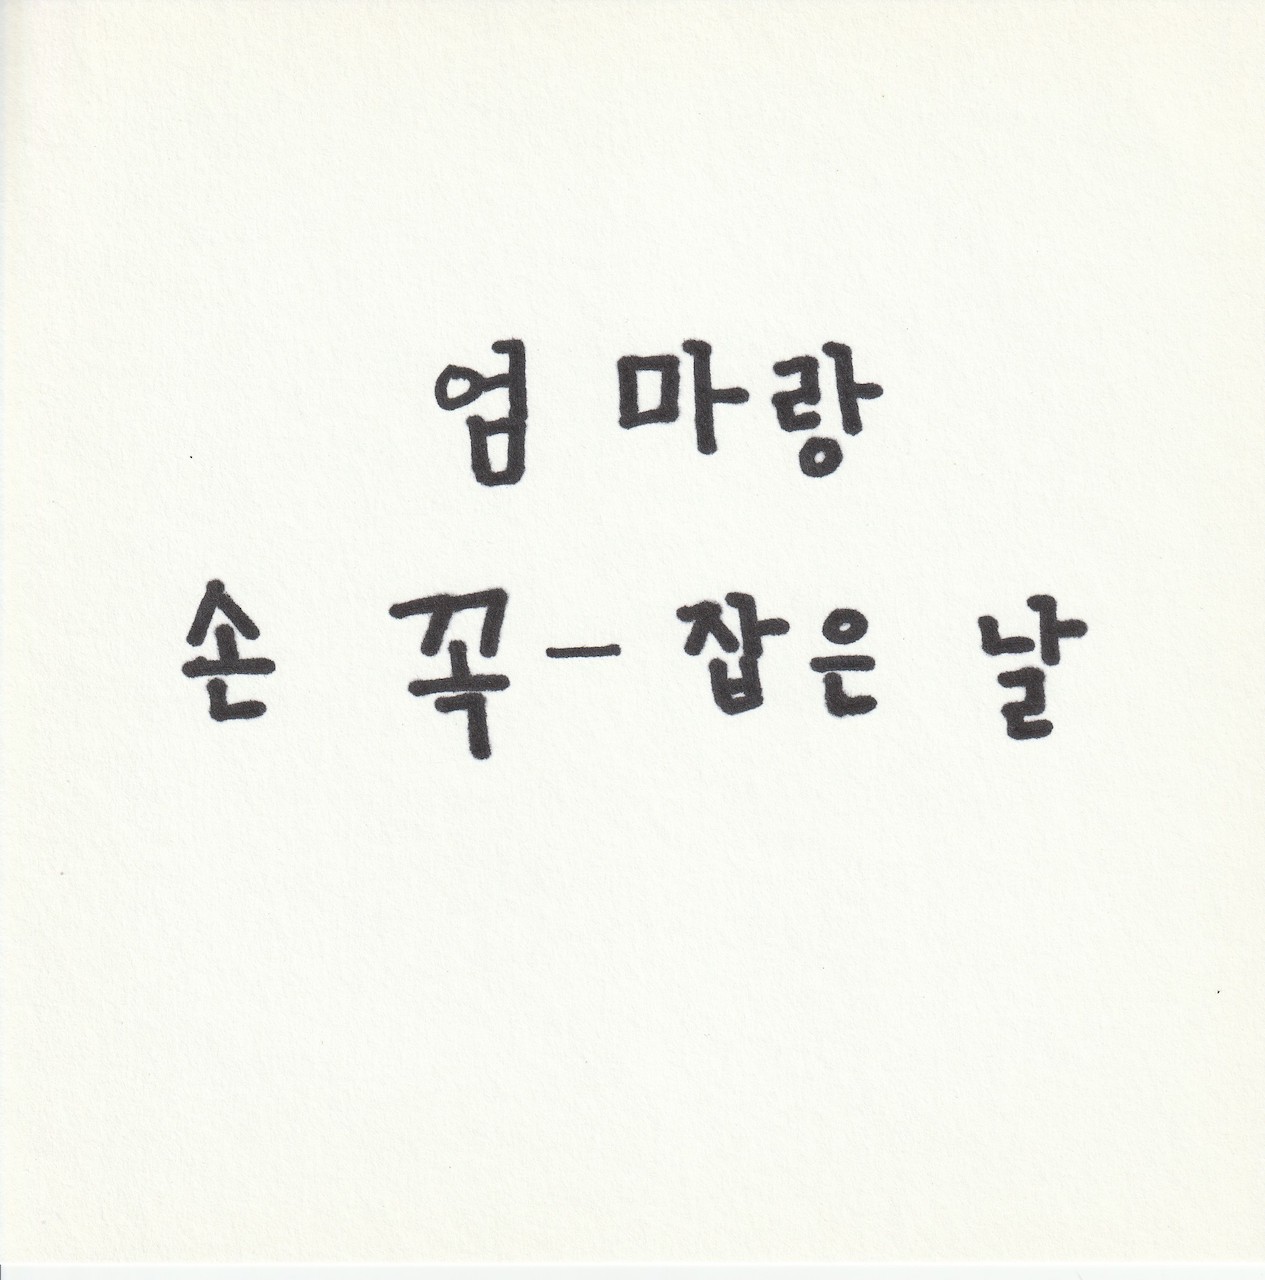 엄마랑
손 꼭- 잡은 날